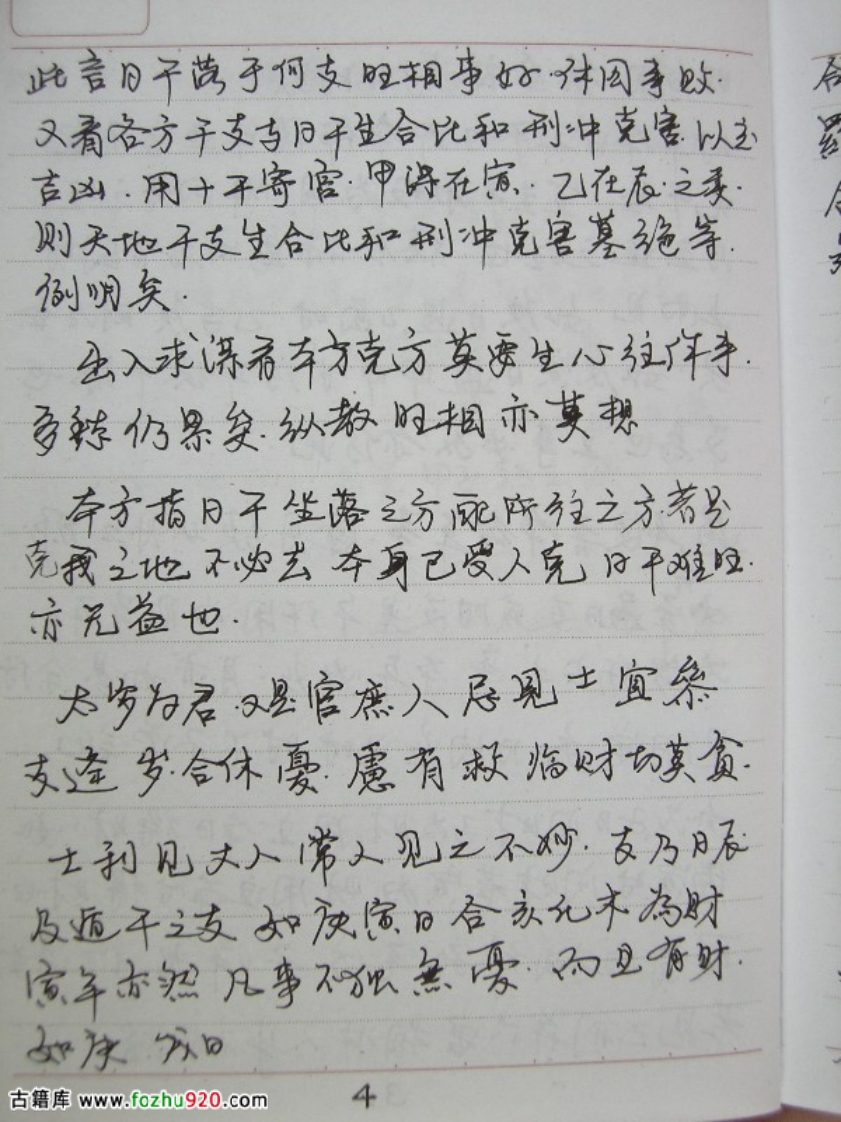 此言日干落于何支旺相事好.休囚事败.
又看各方干支与日干生合比和刑冲克害.以定
吉凶.用十干寄宫.甲课在寅.乙在辰.之类.
则天地干支生合比和刑冲克害墓绝等.
例明矣.
出入求谋看本方克方莫要生心往作事.
多 仍 矣.纵教旺相亦莫想
本方指日干坐落之方配所往之方.若是
克我之地不必去 本身已受人克 日干虽旺.
亦无益也.
太岁为君.又是官庶人忌见士宜参
支逢岁.合休憂.慮有救临财切莫贪.
士利见大人常人见之不妙.支乃日辰
及遁干之支 如庚寅日合亥化木為财
寅年亦然 凡事不独無憂.而且有财.
如庚 日
4
古籍库 www.fozhu920.com